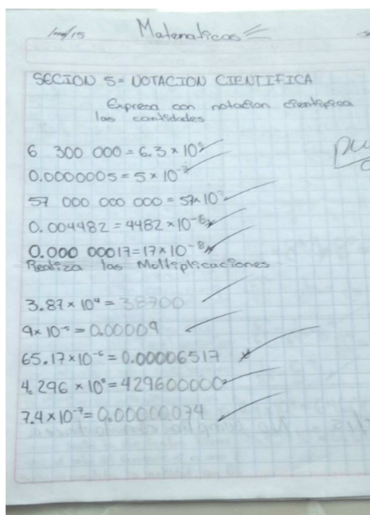 Matematicas
SECCION 5= NOTACION CIENTIFICA
Expresa con notacion cientifica
las cantidades
6 300 000 = 6.3 × 10
0.0000005 = 5 × 10⁻⁷
57 000 000 000 = 57 × 10
0.004482 = 4482 × 10⁻⁶
0.000 00017 = 17 × 10⁻⁸
Realiza las Moltiplicaciones
3.87 × 10⁴ = 38700
9 × 10 = 0.00009
65.17 × 10⁻⁶ = 0.00006517
4.296 × 10 = 429600000
7.4 × 10⁻⁷ =